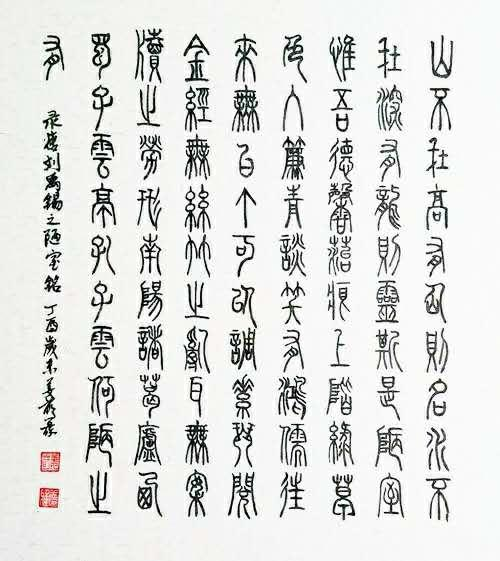 山不在高有仙則名水不
在深有龍則靈斯是陋室
惟吾德馨苔痕上階綠草
色入簾青談笑有鴻儒往
來無白丁可以調素琴閱
金經無絲竹之亂耳無案
牘之勞形南陽諸葛廬西
蜀子雲亭孔子雲何陋之
有
录唐刘禹錫之陋室銘 丁酉歲末